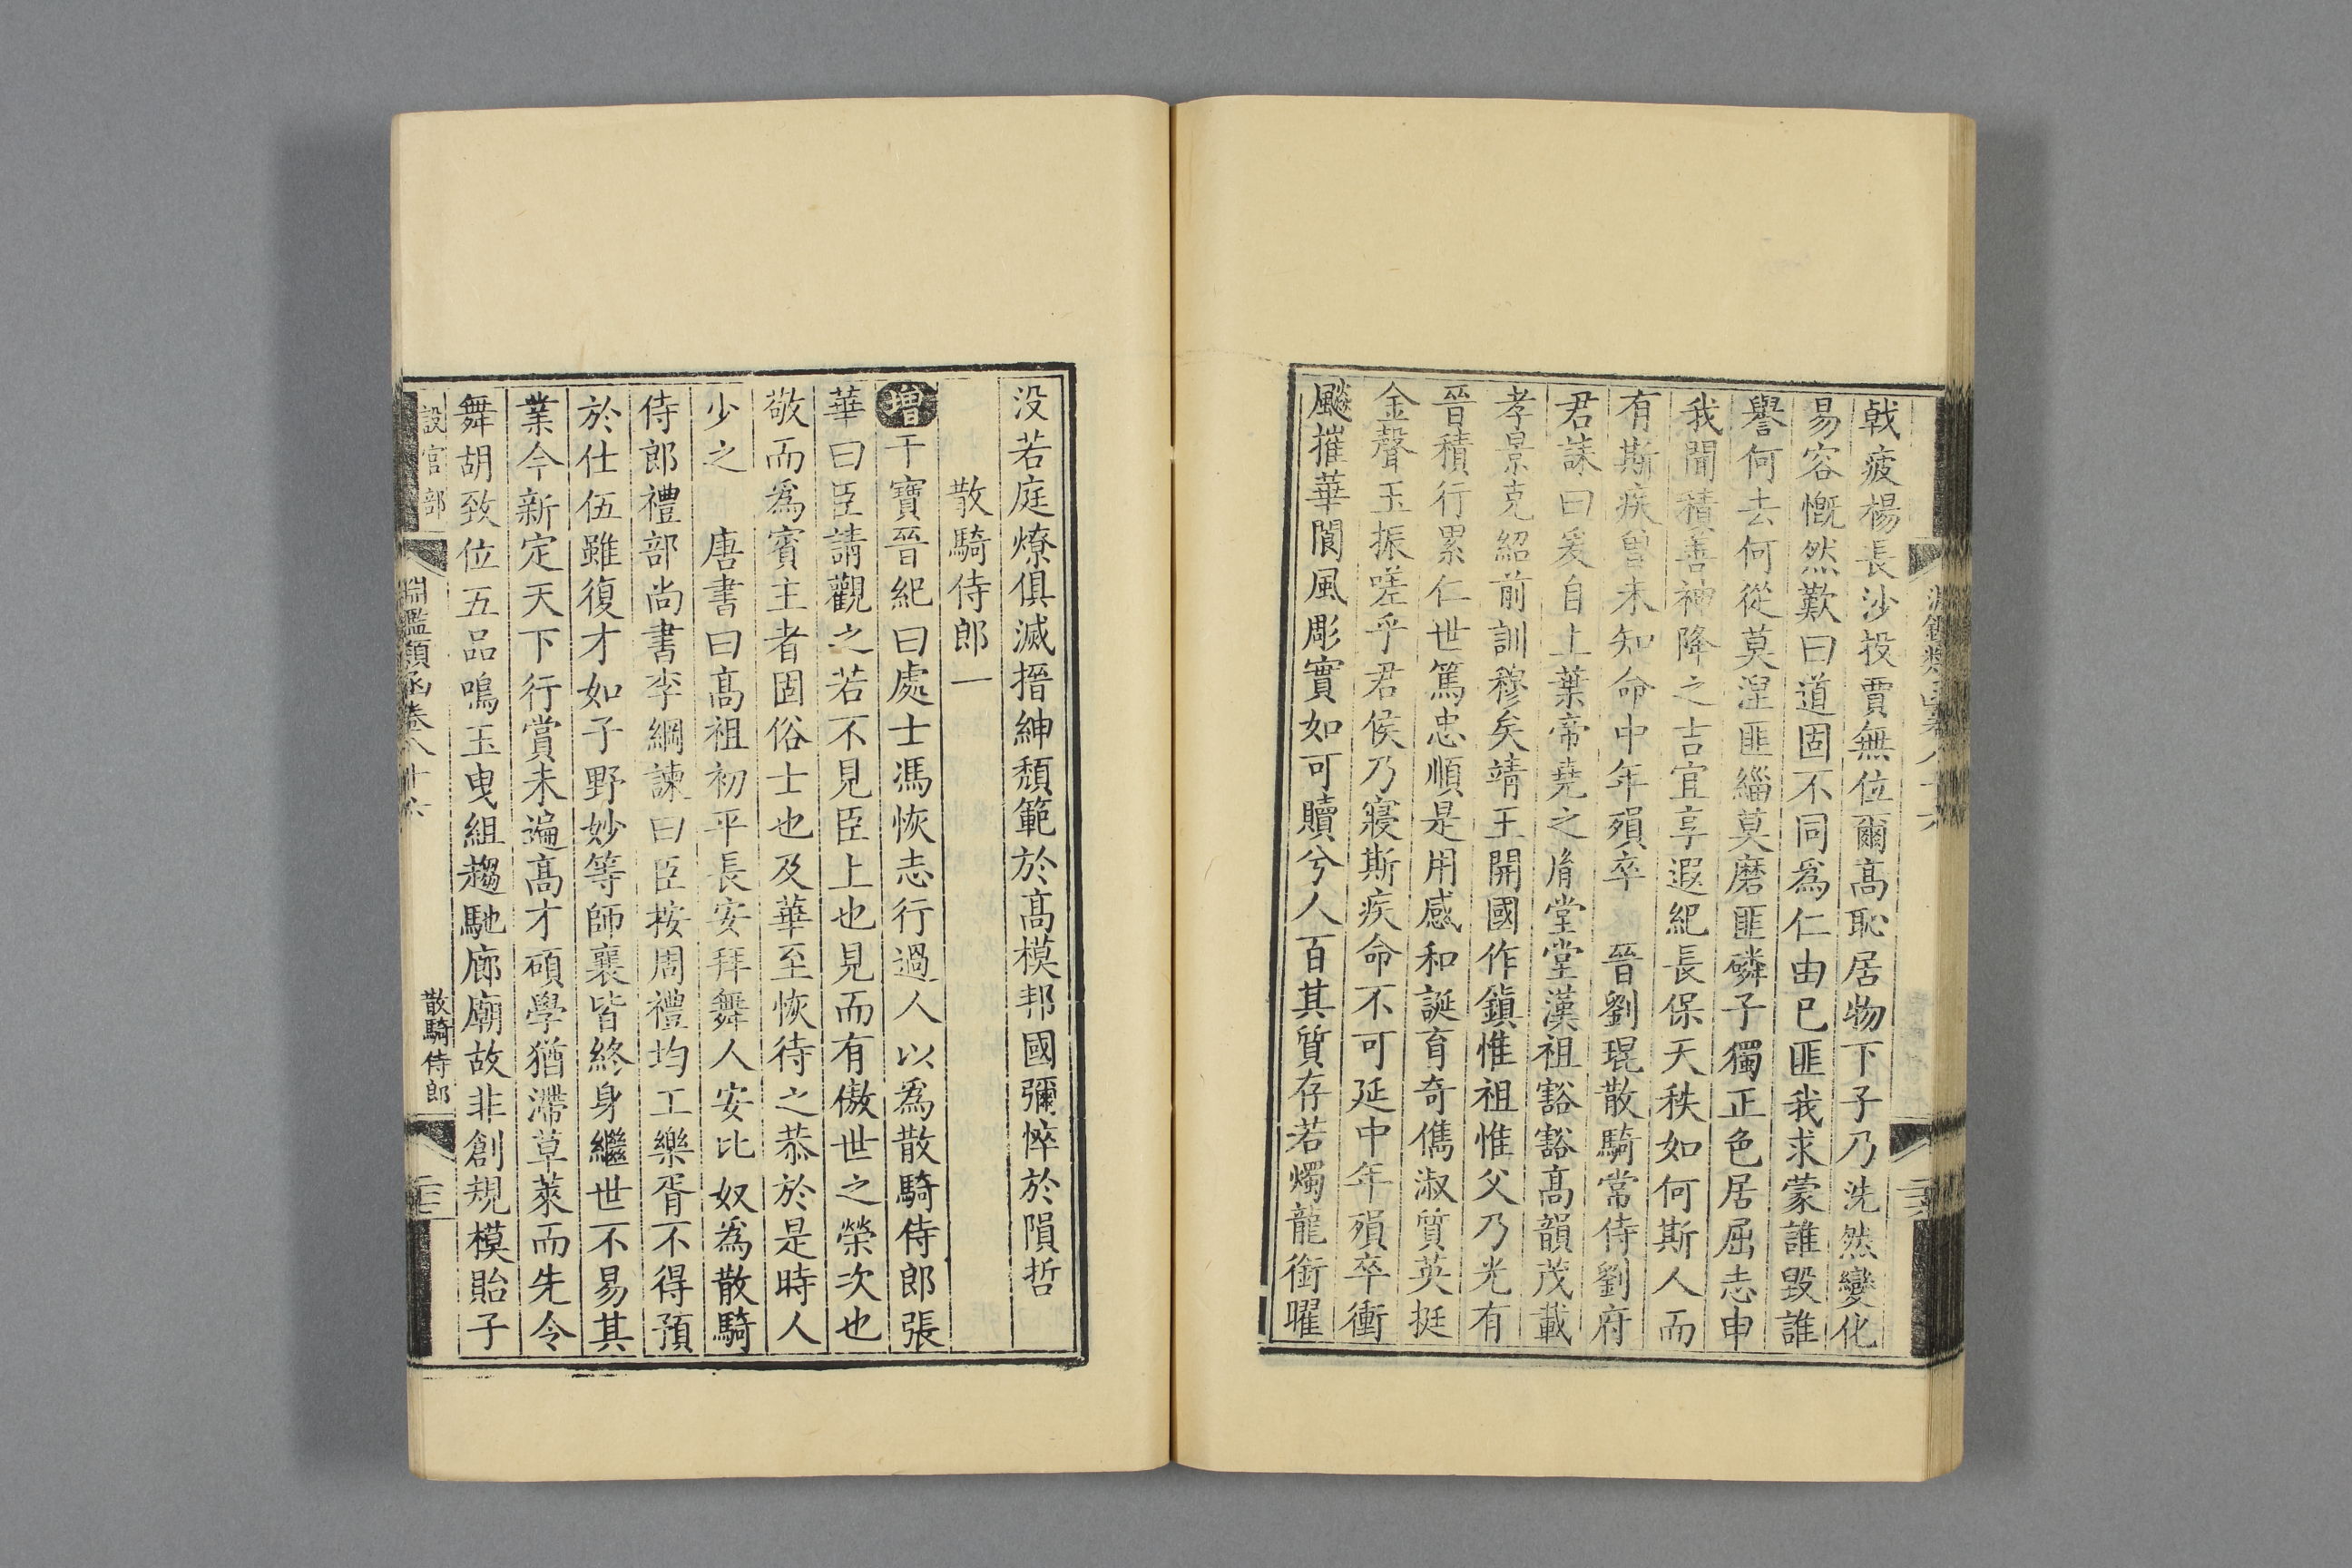 戟疲楊長沙投賈無位爾高恥居物下子乃洗然變化
易容慨然歎曰道固不同爲仁由已匪我求蒙誰毀誰
譽何去何從莫涅匪緇莫磨匪磷子獨正色居屈志申
我聞積善神降之吉宜享遐紀長保天秩如何斯人而
有斯疾曾未知命中年殞卒 晉劉琨散騎常侍劉府
君誄曰爰自上葉帝堯之胤堂堂漢祖豁豁高韻茂載
孝景克紹前訓穆矣靖王開國作鎮惟祖惟父乃光有
晉積行累仁世篤忠順是用感和誕育奇儁淑質英挺
金聲玉振嗟乎君侯乃寢斯疾命不可延中年殞卒衝
飈摧華閬風彫實如可贖兮人百其質存若燭龍銜曜
没若庭燎俱滅搢紳頹範於高模邦國彌悴於隕哲
散騎侍郎一
增干寶晉紀曰處士馮恢志行過人以爲散騎侍郎張
華曰臣請觀之若不見臣上也見而有傲世之榮次也
敬而爲賓主者固俗士也及華至恢待之恭於是時人
少之 唐書曰高祖初平長安拜舞人安比奴爲散騎
侍郎禮部尚書李綱諫曰臣按周禮均工樂胥不得預
於仕伍雖復才如子野妙等師襄皆終身繼世不易其
業今新定天下行賞未遍高才碩學猶滯草萊而先令
舞胡致位五品鳴玉曳組趨馳廊廟故非創規模貽子
設官部
淵鑑類函卷八十六
散騎侍郎